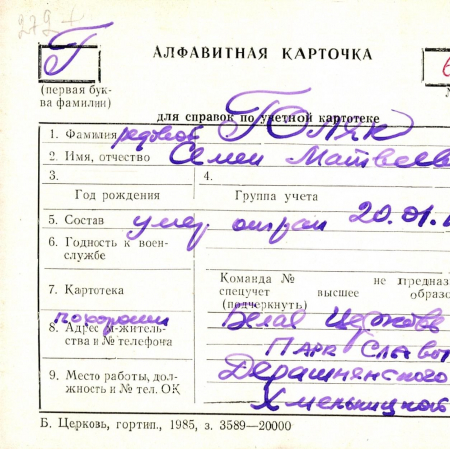 279
Г
АЛФАВИТНАЯ КАРТОЧКА
(первая бук-
ва фамилии)
для справок по учетной картотеке
1. Фамилия рядовой Голяк
2. Имя, отчество Семен Матвеев
3. 4.
Год рождения Группа учета
5. Состав умер от ран 20.01.
6. Годность к воен-
службе
Команда № не предназ
7. Картотека спецучет высшее образо
(подчеркнуть)
похоронен Белая Церковь
8. Адрес м-житель-
ства и № телефона Парк Славы
9. Место работы, дол-
жность и № тел. ОК Деражнянского
Хмельницкой
Б. Церковь, гортип., 1985, з. 3589—20000